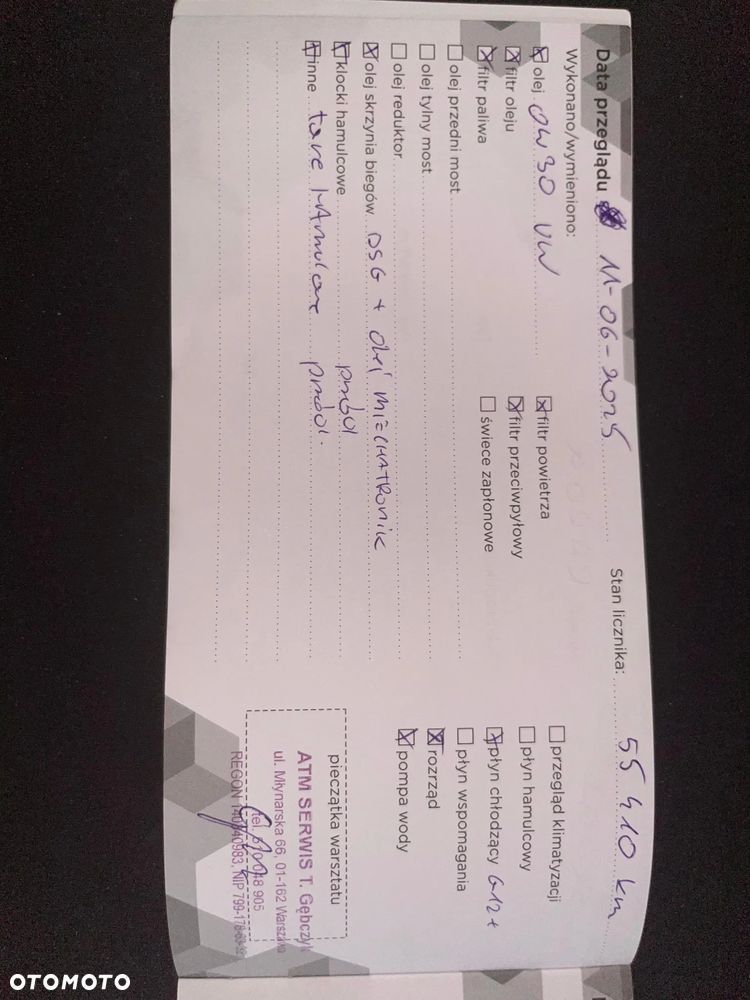 Data przeglądu 11-06-2025 Stan licznika: 55 410 km
Wykonano/wymieniono:
olej 0W30 VW
filtr oleju
filtr paliwa
olej przedni most
olej tylny most
olej reduktor
olej skrzynia biegów DSG + olej MECHATRONIK
klocki hamulcowe przód
inne tarcze hamulcowe przód.
filtr powietrza
filtr przeciwpyłowy
świece zapłonowe
przegląd klimatyzacji
płyn hamulcowy
płyn chłodzący G12+
płyn wspomagania
rozrząd
pompa wody
pieczątka warsztatu
ATM SERWIS T. Gębczyk
ul. Młynarska 66, 01-162 Warszawa
tel. 905
REGON NIP
OTOMOTO